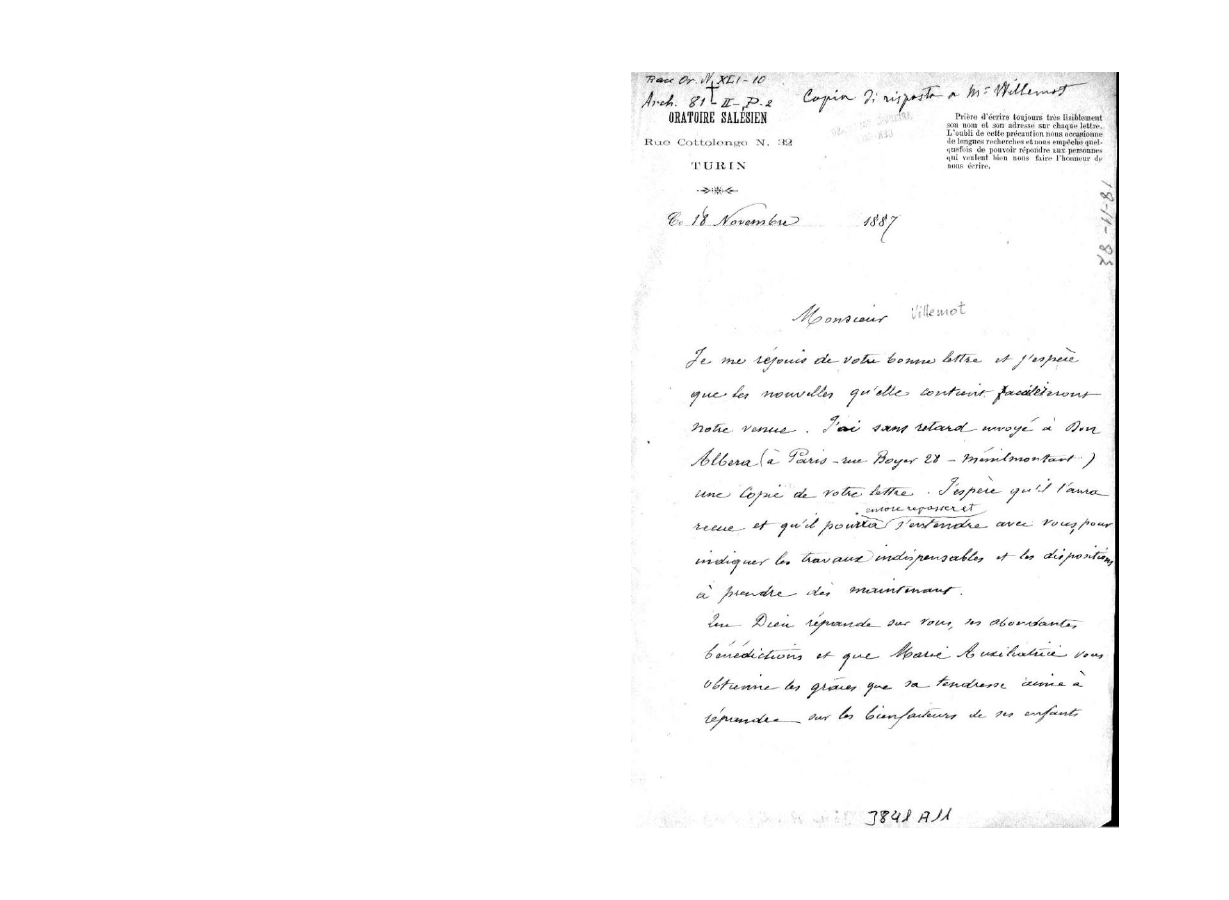 Race Or. N. XLI-10
Arch. 81 - II - P. 2
Copia di risposta a Mr Willemot
ORATOIRE SALÉSIEN
Rue Cottolengo N. 32
TURIN
Prière d'écrire toujours très lisiblement
son nom et son adresse sur chaque lettre.
L'oubli de cette précaution nous occasionne
de longues recherches et nous empêche quel-
quefois de pouvoir répondre aux personnes
qui veulent bien nous faire l'honneur de
nous écrire.
Ce 18 Novembre 1887
Monsieur Villemot
Je me réjouis de votre bonne lettre et j'espère
que les nouvelles qu'elle contient faciliteront
notre venue. J'ai sans retard envoyé à Don
Albera (à Paris - rue Boyer 28 - Ménilmontant)
une Copie de votre lettre. J'espère qu'il l'aura
recue et qu'il pourra encore repasser et s'entendre avec vous, pour
indiquer les travaux indispensables et les dispositions
à prendre dès maintenant.
Que Dieu répande sur vous, ses abondantes
bénédictions et que Marie Auxiliatrice vous
obtienne les grâces que sa tendresse aime à
répandre sur les bienfaiteurs de ses enfants
3848 A11